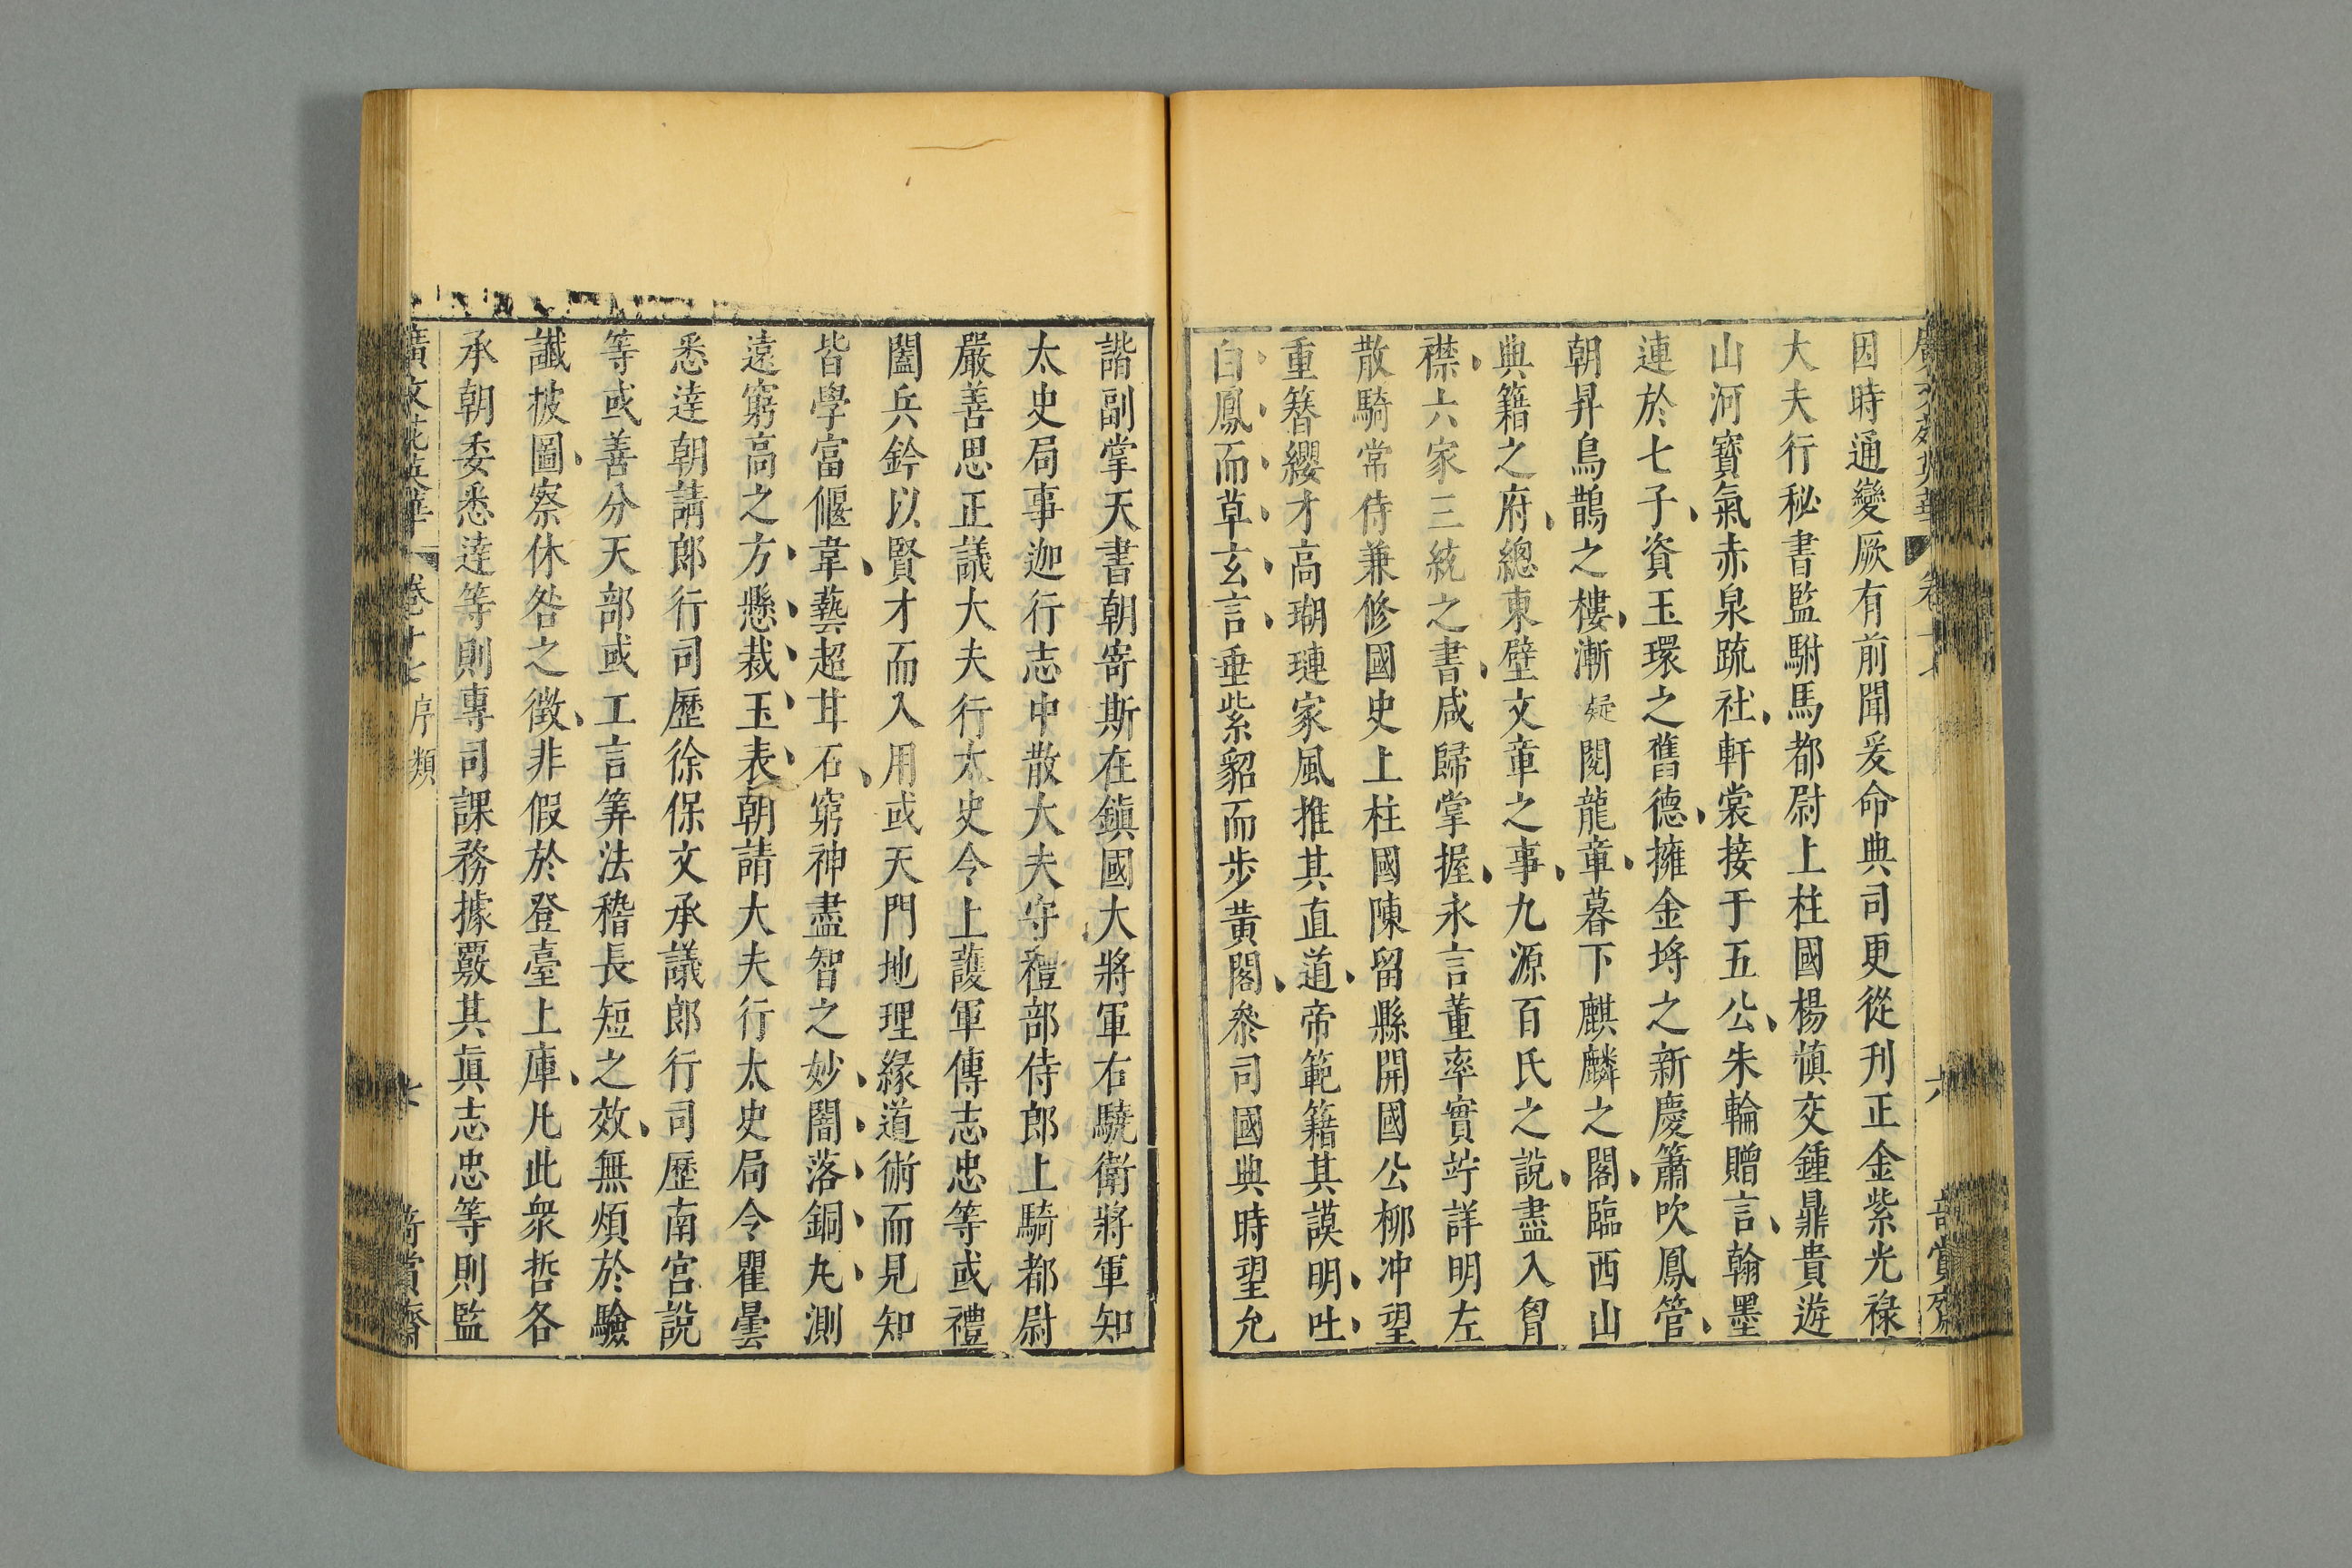 因時通變厥有前聞爰命典司更從刋正金紫光祿
大夫行秘書監駙馬都尉上柱國楊慎交鍾鼎貴遊
山河寶氣赤泉疏社軒裳接于五公朱輪贈言翰墨
連於七子資玉環之舊德擁金埒之新慶簫吹鳳管
朝昇鳥鵲之樓漸疑閱龍章暮下麒麟之閣臨西山
典籍之府總東壁文章之事九源百氏之說盡入胷
襟六家三統之書咸歸掌握永言董率實竚詳明左
散騎常侍兼修國史上柱國陳留縣開國公柳冲望
重簪纓才高瑚璉家風推其直道帝範籍其謨明吐
白鳳而草玄言垂紫貂而步黃閣叅司國典時望允
諧副掌天書朝寄斯在鎮國大將軍右驍衛將軍知
太史局事迦行志中散大夫守禮部侍郎上騎都尉
嚴善思正議大夫行太史令上護軍傅志忠等或禮
闔兵鈐以賢才而入用或天門地理緣道術而見知
皆學富偃韋藝超甘石窮神盡智之妙闇落銅丸測
遠窮高之方懸裁玉表朝請大夫行太史局令瞿曇
悉達朝請郎行司歷徐保文承議郎行司歷南宮說
等或善分天部或工言筭法稽長短之效無煩於驗
讖披圖察休咎之徵非假於登臺上庫凡此衆哲各
承朝委悉達等則專司課務據覈其眞志忠等則監
廣文苑英華 卷十七 序類 七